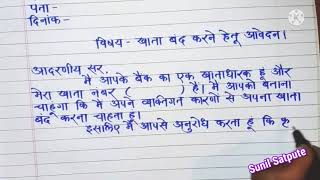 पता-
दिनांक-
विषय- खाता बंद करने हेतू आवेदन।
आदरणीय सर,
मै आपके बैंक का एक खाताधारक हूं और
मेरा खाता नंबर ( ) है। मैं आपको बताना
चाहूंगा कि मैं अपने व्यक्तिगत कारणों से अपना खाता
बंद करना चाहता हूं।
इसलिए मैं आपसे अनुरोध करता हूं कि कृ
Sunil Satpute